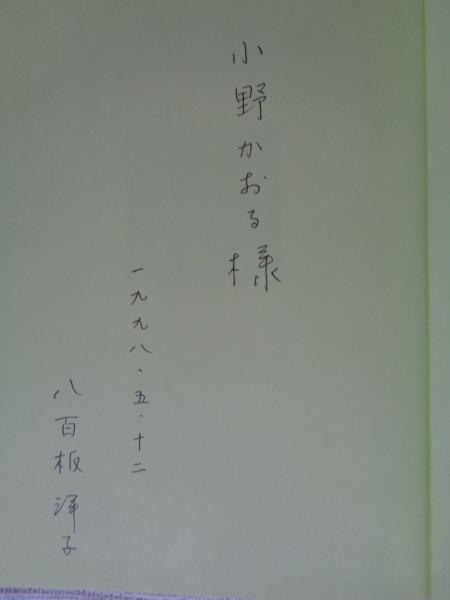 小野かおる様
一九九八・五・十二
八百板洋子